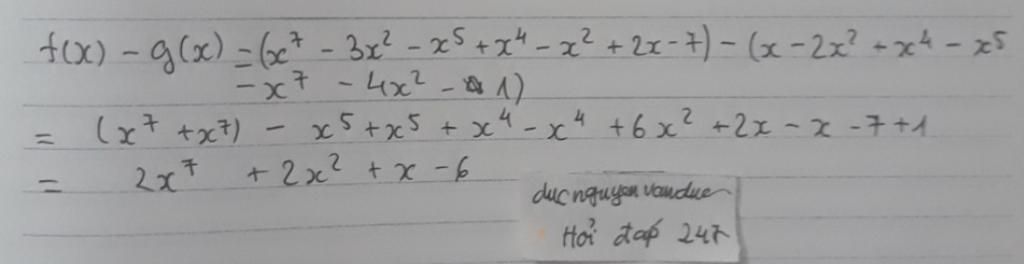 f(x) - g(x) = (x⁷ - 3x² - x⁵ + x⁴ - x² + 2x - 7) - (x - 2x² + x⁴ - x⁵
- x⁷ - 4x² - 1)
= (x⁷ + x⁷) - x⁵ + x⁵ + x⁴ - x⁴ + 6x² + 2x - x - 7 + 1
= 2x⁷ + 2x² + x - 6
ducnguyenvanduc
Hỏi đáp 247